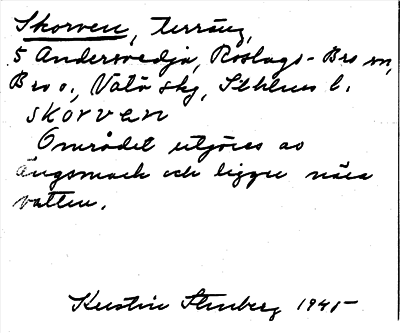 Skorven, Terräng,
5 Andersvedja, Roslags-Bro sn,
Bro o., Vätö skg, Sthlms l.
skorven
Området utgöres av
ängsmark och ligger nära
vatten.
Kerstin Stenberg 1945